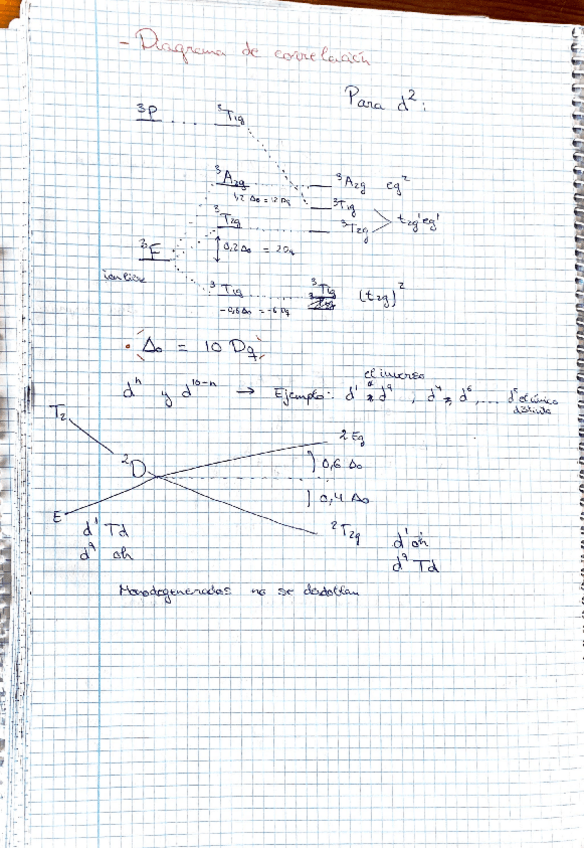 - Diagrama de correlación
Para d²:
³P .... ³T1g
³A2g ³A2g eg²
1,2 Δo = 12Dq ³T1g
³T2g ³T2g t2g¹eg¹
³F 0,2Δo = 2Dq
³T1g ³T1g (t2g)²
-0,6Δo = -6Dq
• Δo = 10 Dq
el inverso
dⁿ y d¹⁰⁻ⁿ → Ejemplo: d¹ d⁹, d⁴ d⁶, .... d⁵ el único
distinto
T2
2Eg
²D 0,6 Δo
0,4 Δo
E
²T2g
d¹ Td d¹ oh
d⁹ oh d⁹ Td
Monodegenerados no se desdoblan